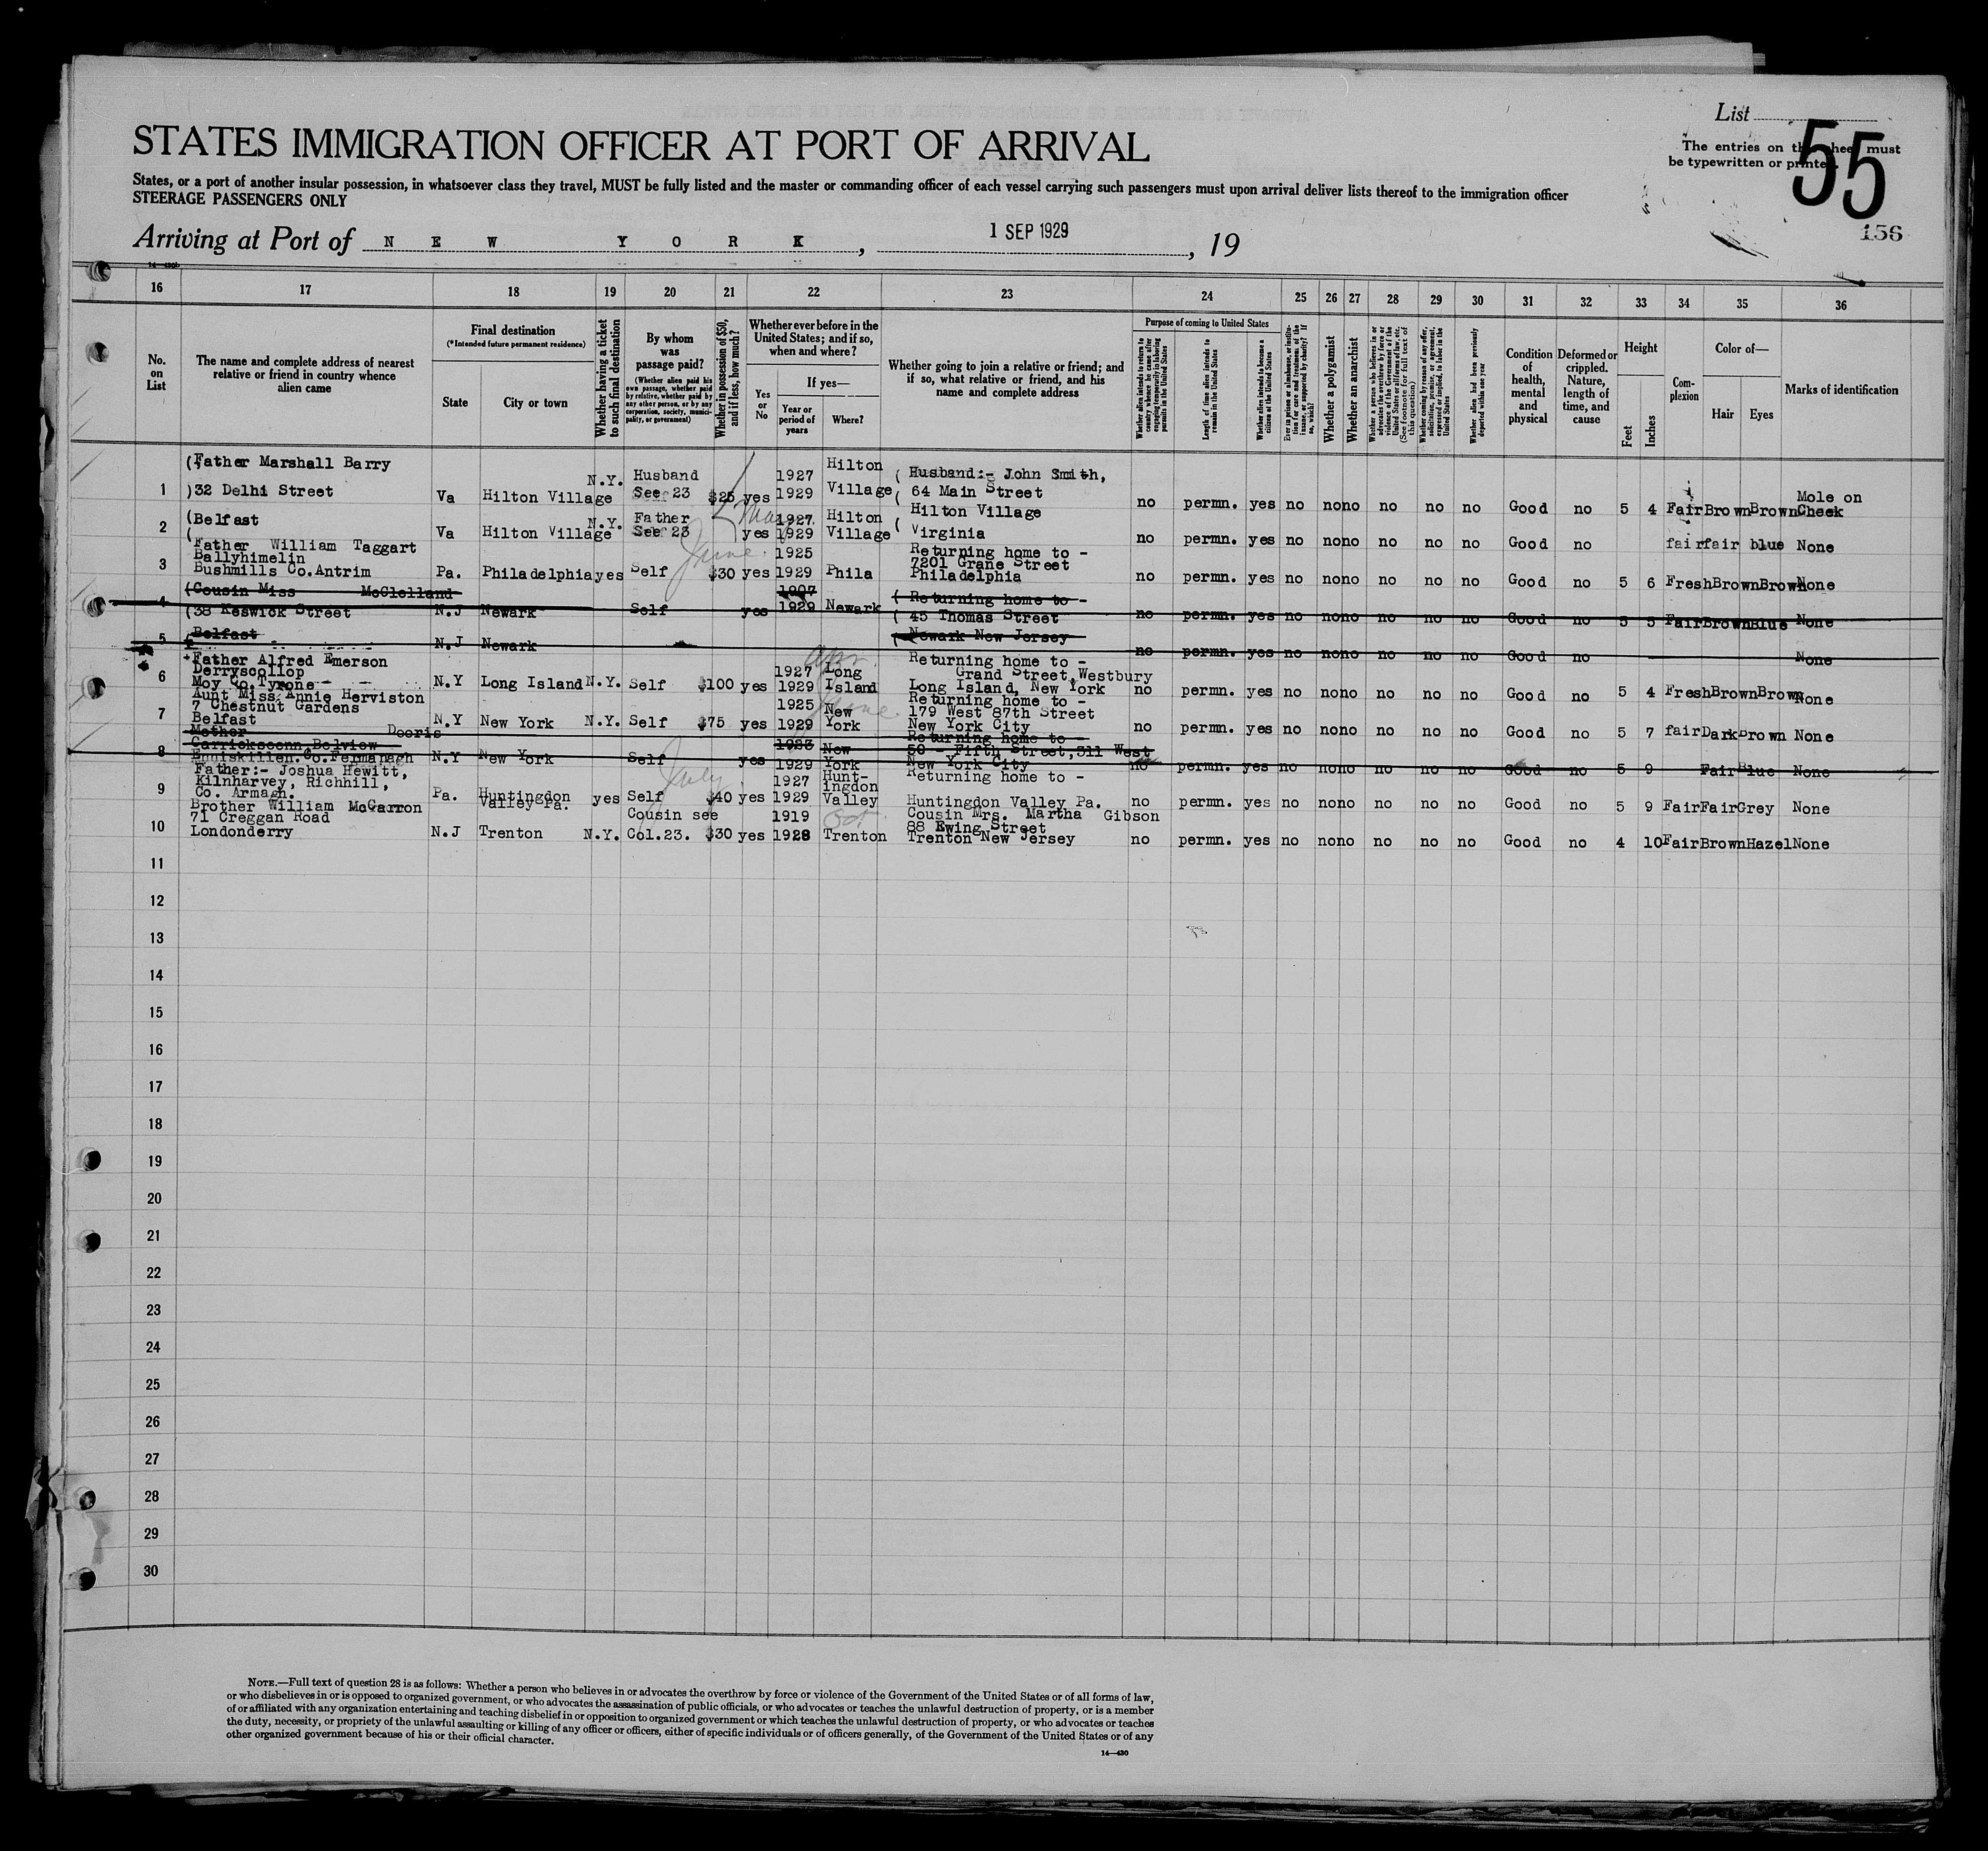 List
55
The entries on this sheet must
be typewritten or printed.
156
STATES IMMIGRATION OFFICER AT PORT OF ARRIVAL
States, or a port of another insular possession, in whatsoever class they travel, MUST be fully listed and the master or commanding officer of each vessel carrying such passengers must upon arrival deliver lists thereof to the immigration officer
STEERAGE PASSENGERS ONLY
Arriving at Port of NEW YORK, 1 SEP 1929, 19
16 17 18 19 20 21 22 23 24 25 26 27 28 29 30 31 32 33 34 35 36
No. on List
The name and complete address of nearest relative or friend in country whence alien came
Final destination
(*Intended future permanent residence)
State
City or town
Whether having a ticket to such final destination
By whom was passage paid?
(Whether alien paid his own passage, whether paid by relative, whether paid by any other person, or by any corporation, society, municipality, or government)
Whether in possession of $50, and if less, how much?
Whether ever before in the United States; and if so, when and where?
Yes or No
If yes—
Year or period of years
Where?
Whether going to join a relative or friend; and if so, what relative or friend, and his name and complete address
Purpose of coming to United States
Whether alien intends to return to country whence he came after engaging temporarily in laboring pursuits in the United States
Length of time alien intends to remain in the United States
Whether alien intends to become a citizen of the United States
Ever in prison or almshouse, or institution for care and treatment of the insane, or supported by charity? If so, which?
Whether a polygamist
Whether an anarchist
Whether a person who believes in or advocates the overthrow by force or violence of the Government of the United States or all forms of law, etc. (See footnote for full text of this question)
Whether coming by reason of any offer, solicitation, promise, or agreement, expressed or implied, to labor in the United States
Whether alien had been previously deported within one year
Condition of health, mental and physical
Deformed or crippled. Nature, length of time, and cause
Height
Feet
Inches
Complexion
Color of—
Hair
Eyes
Marks of identification
(Father Marshall Barry Husband 1927 Hilton ( Husband:- John Smith,
1 )32 Delhi Street Va Hilton Village N.Y. See 23 $25 yes 1929 Village ( 64 Main Street no permn. yes no no no no no no Good no 5 4 Fair Brown Brown Mole on Cheek
(Belfast Father May 1927 Hilton Hilton Village
2 ( Va Hilton Village N.Y. See 23 yes 1929 Village ( Virginia no permn. yes no no no no no no Good no fair fair blue None
Father William Taggart June. 1925 Returning home to -
Ballyhimelin 7201 Grane Street
3 Bushmills Co.Antrim Pa. Philadelphia yes Self $30 yes 1929 Phila Philadelphia no permn. yes no no no no no no Good no 5 6 Fresh Brown Brown None
(Cousin Miss McClelland 1927 ( Returning home to -
4 (38 Keswick Street N.J Newark Self yes 1929 Newark ( 45 Thomas Street no permn. yes no no no no no no Good no 5 5 Fair Brown Blue None
5 (Belfast N.J Newark (Newark New Jersey no permn. yes no no no no no no Good no None
Father Alfred Emerson Apr. Returning home to -
Derryscollop 1927 Long Grand Street,Westbury
6 Moy Co.Tyrone N.Y Long Island N.Y. Self $100 yes 1929 Island Long Island, New York no permn. yes no no no no no no Good no 5 4 Fresh Brown Brown None
Aunt Miss Annie Herviston 1925 June. Returning home to -
7 7 Chestnut Gardens New 179 West 87th Street
Belfast N.Y New York N.Y. Self $75 yes 1929 York New York City no permn. yes no no no no no no Good no 5 7 fair Dark Brown None
Mother Dooris Returning home to -
Carricksoonn,Belview 1923 New 50 - Fifth Street,311 West
8 Enniskillen.Co.Fermanagh N.Y New York Self yes 1929 York New York City no permn. yes no no no no no no Good no 5 9 Fair Blue None
Father:- Joshua Hewitt, July 1927 Hunt- Returning home to -
9 Kilnharvey, Richhill, ingdon
Co. Armagh. Pa. Huntingdon Valley Pa. yes Self $40 yes 1929 Valley Huntingdon Valley Pa. no permn. yes no no no no no no Good no 5 9 Fair Fair Grey None
Brother William McCarron Cousin see 1919 Oct. Cousin Mrs. Martha Gibson
71 Creggan Road 88 Ewing Street
10 Londonderry N.J Trenton N.Y. Col.23. $30 yes 1928 Trenton Trenton New Jersey no permn. yes no no no no no no Good no 4 10 Fair Brown Hazel None
11
12
13
14
15
16
17
18
19
20
21
22
23
24
25
26
27
28
29
30
NOTE.—Full text of question 28 is as follows: Whether a person who believes in or advocates the overthrow by force or violence of the Government of the United States or of all forms of law,
or who disbelieves in or is opposed to organized government, or who advocates the assassination of public officials, or who advocates or teaches the unlawful destruction of property, or is a member
of or affiliated with any organization entertaining and teaching disbelief in or opposition to organized government or which teaches the unlawful destruction of property, or who advocates or teaches
the duty, necessity, or propriety of the unlawful assaulting or killing of any officer or officers, either of specific individuals or of officers generally, of the Government of the United States or of any
other organized government because of his or their official character.
14—430